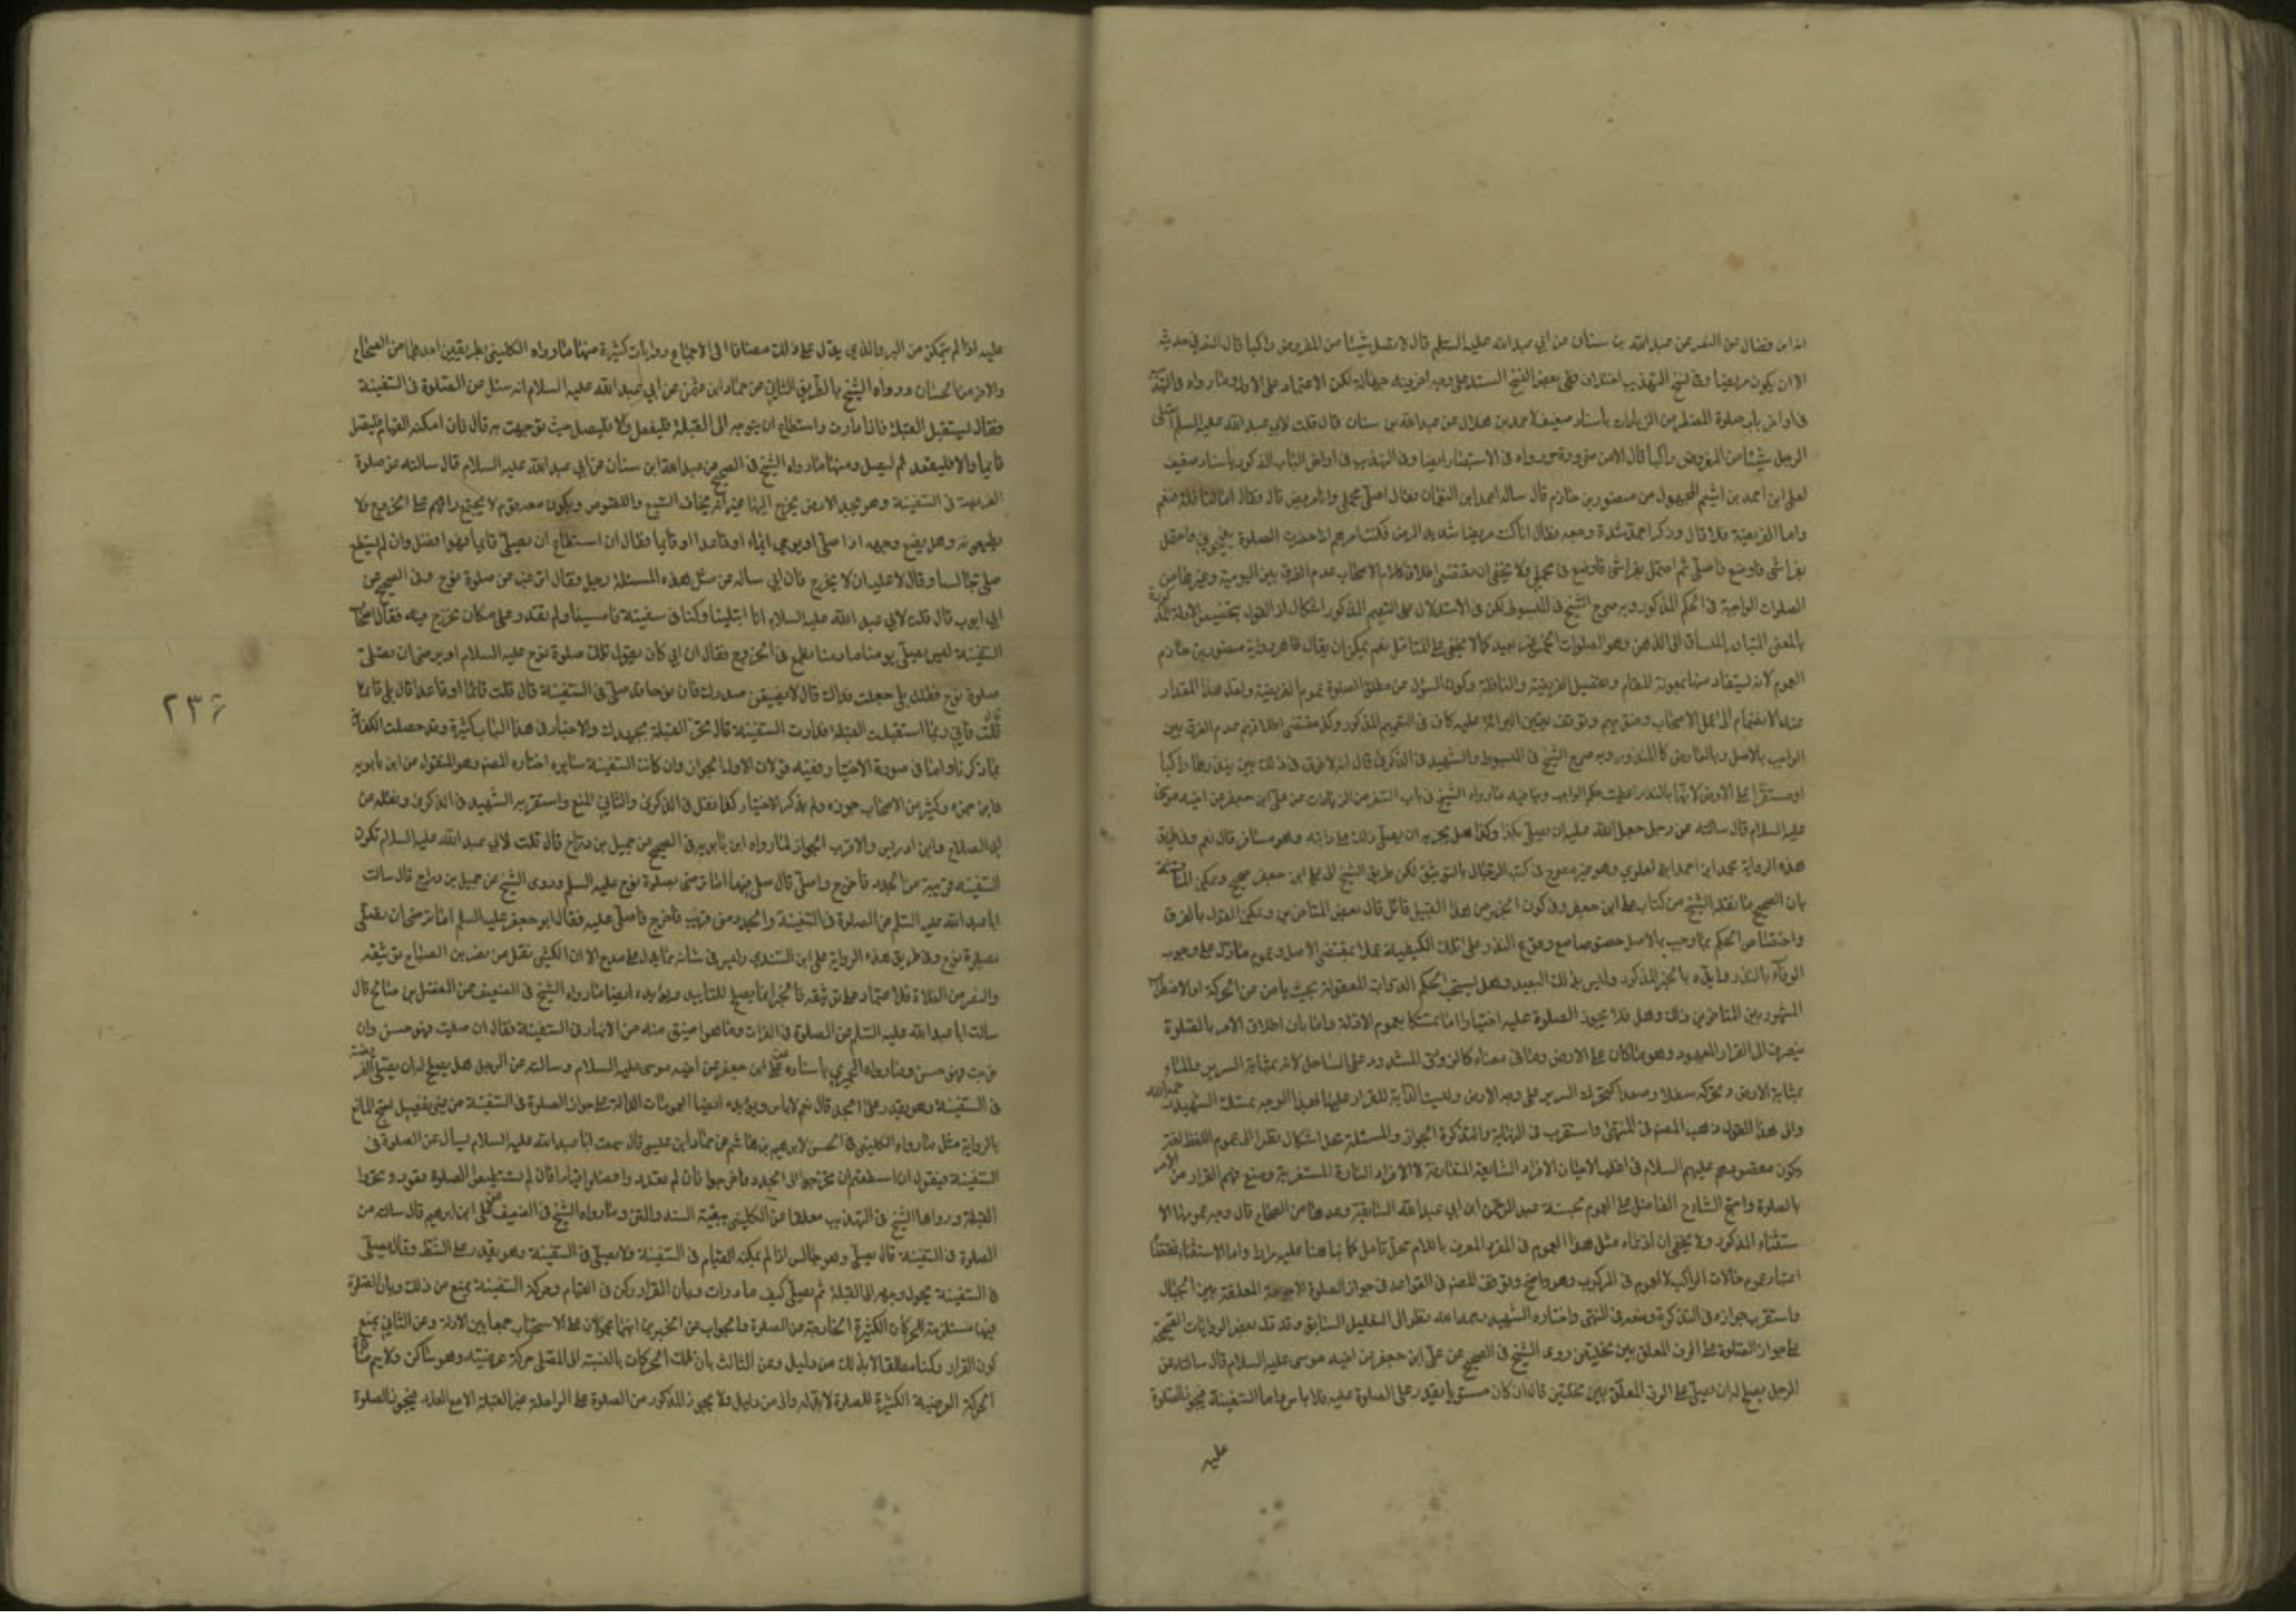 ابن فضال عن النضر عن عبد الله بن سنان عن ابي عبد الله عليه السلام قال لا تصل شيئا من المفروض راكبا قال النضر في حديثه
الا ان يكون مريضا وفي نسخ التهذيب اختلاف ففي بعض النسخ السند على وجه لكن الاعتماد على الاول وما رواه في التهذيب
في اواخر باب صلوة المضطر من الزيادات باسناد ضعيف لاحمد بن هلال عن عبد الله بن سنان قال قلت لابي عبد الله عليه السلام ايصلى
الرجل شيئا من المفروض راكبا قال لا من ضرورة ورواه في الاستبصار ايضا وفي التهذيب في اواخر الباب المذكور باسناد ضعيف
لعلى ابن احمد بن اشيم المجهول عن منصور بن حازم قال ساله احمد ابن النعمان فقال اصلى في محملى وانا مريض قال فقال اما النافلة فنعم
واما الفريضة فلا قال وذكر احمد شدة وجعه فقال انا كنت مريضا شديد المرض فكنت امرهم اذا حضرت الصلوة فاحتمل
بفراشى فاوضع فاصلى ثم احتمل بفراشى فاوضع في محملى ولا يخفى ان مقتضى اطلاق كلام الاصحاب عدم الفرق بين اليومية وغيرها من
الصلوات الواجبة في الحكم المذكور وبه صرح الشيخ في المبسوط لكن في الاستدلال على التعميم المذكور اشكال اذ القول بتخصيص الادلة
بالمعنى المتبادر المنساق الى الذهن وهو الصلوات الخمس غير بعيد كما لا يخفى على المتامل نعم يمكن ان يقال ظاهر رواية منصور بن حازم
العموم لانه يستفاد منها بمعونة المقام وتفصيل الفريضة والنافلة وكون السؤال عن مطلق الصلوة عموم الفريضة ولعل هذا المقدار
الواجب بالاصل وبالعارض كالمنذور وبه صرح الشيخ في المبسوط والشهيد في الذكرى قال لا فرق في ذلك بين ان ينذرها راكبا
او مستقرا على الارض لانها بالنذر اعطيت حكم الواجب وينافيه ما رواه الشيخ في باب السفر من الزيادات عن على ابن جعفر عن اخيه موسى
عليه السلام قال سالته عن رجل جعل لله عليه ان يصلى كذا وكذا هل يجزيه ان يصلى ذلك على دابته وهو مسافر قال نعم وفي طريق
هذه الرواية محمد ابن احمد العلوي وهو غير في كتب الرجال بالتوثيق لكن طريق الشيخ الى على ابن جعفر صحيح
بان الصحيح ما نقله الشيخ من كتاب على ابن جعفر وفي كون الخبر من هذا القبيل تامل قال بعض المتاخرين ويمكن القول بالفرق
واختصاص الحكم بما وجب بالاصل خصوصا مع وقوع النذر على تلك الكيفية عملا بمقتضى الاصل وعموم ما دل على وجوب
الوفاء بالنذر وايده بالخبر المذكور وليس بذلك البعيد وهل يستحب الحكم الدواب المعقولة بحيث يامن من الحركة او الاضطراب
المشهور بين المتاخرين ذلك وهل فلا يجوز الصلوة عليه اختيارا اما تمسكا بعموم الادلة واما بان اطلاق الامر بالصلوة
ينصرف الى القرار المعهود وهو ما كان على الارض وما في معناه كالزورق المشدود على الساحل لانه بمثابة السرير والماء
بمثابة الارض وتحركه سفلا وصعدا كتحرك السرير على وجه الارض وليست الدابة للقرار عليها فهذا الوجه تمسك الشهيد رحمه الله
والى هذا القول ذهب المصنف في المنتهى واستقرب في النهاية والتذكرة الجواز والمسئلة محل اشكال نظرا الى عموم اللفظ لغة
بالصلوة واحتج الشارح الفاضل على العموم بحسنة عبد الرحمن ابن ابي عبد الله السابقة وعدها من الصحاح
ستثناء المذكور ولا يخفى ان ادعاء مثل هذا العموم في المفرد المعرف باللام محل تامل كما نبهنا عليه مرارا واما الاستثناء
اعتبار عموم حالات الراكب لا العموم في المركوب وهو واضح وتوقف المصنف في القواعد في جواز الصلوة الارجوحة المعلقة بين الجبال
واستقرب جوازه في التذكرة ومنعه في المنتهى واختاره الشهيد رحمه الله نظرا الى التعليل السابق وقد تدل بعض الروايات الصحيحة
على جواز الصلوة على الرف المعلق بين نخلتين روى الشيخ في الصحيح عن على ابن جعفر عن اخيه موسى عليه السلام قال سالته عن
الرجل يصلح له ان يصلى على الرف المعلق بين نخلتين قال ان كان مستويا يقدر على الصلوة عليه فلا باس واما السفينة فيجوز الصلوة
عليه
عليه اذا لم يتمكن من البر والذي يدل على ذلك مضافا الى الاجماع روايات كثيرة منها ما رواه الكلينى بطريقين احدهما من الصحاح
والاخر من الحسان ورواه الشيخ بالطريق الثاني عن حماد ابن عثمن عن ابي عبد الله عليه السلام انه سئل عن الصلوة في السفينة
فقال يستقبل القبلة فاذا دارت واستطاع ان يتوجه الى القبلة فليفعل والا فليصل حيث توجهت به قال فان امكنه القيام فليصل
قائما والا فليقعد ثم ليصل ومنها ما رواه الشيخ في الصحيح عن عبد الله ابن سنان عن ابي عبد الله عليه السلام قال سالته عن صلوة
الفريضة في السفينة وهو يجد الارض يخرج اليها غير انه يخاف السبع واللصوص ويكون معه قوم لا يجتمع رايهم على الخروج ولا
يطيعونه وهل يضع وجهه اذا صلى او يومى ايماء او قاعدا او قائما فقال ان استطاع ان يصلى قائما فهو افضل وان لم يستطع
صلى جالسا وقال لا عليه ان لا يخرج فان ابي ساله عن مثل هذه المسئلة رجل فقال اترغب عن صلوة نوح وفي الصحيح عن
ابي ايوب قال قلت لابي عبد الله عليه السلام انا ابتلينا وكنا في سفينة فامسينا ولم نقدر على مكان نخرج فيه فقال اصحاب
السفينة ليس نصلى يومنا ما دمنا نطمع في الخروج فقال ان ابي كان يقول تلك صلوة نوح عليه السلام او ما ترضى ان تصلى
صلوة نوح فقلت بلى جعلت فداك قال لا يضيقن صدرك فان نوحا قد صلى في السفينة قال قلت قائما او قاعدا قال بلى قائما
قال قلت فاني ربما استقبلت القبلة فدارت السفينة قال تحر القبلة بجهدك والاخبار في هذا الباب كثيرة وقد حصلت الكفاية
بما ذكرناه واما في صورة الاختيار ففيه قولان الاول الجواز وان كانت السفينة سايره اختاره المصنف وهو المنقول عن ابن بابويه
وابن حمزه وكثير من الاصحاب جوزه ولم يذكر الاختيار كذا نقل في الذكرى والثاني المنع واستقر به الشهيد في الذكرى ونقله عن
ابي الصلاح وابن ادريس والاقرب الجواز لما رواه ابن بابويه في الصحيح عن جميل بن دراج قال قلت لابي عبد الله عليه السلام تكون
السفينة قريبة من الجدد فاخرج واصلى قال صل فيها اما ترضى بصلوة نوح عليه السلم وروى الشيخ عن جميل بن دراج قال سالت
ابا عبد الله عليه السلم عن الصلوة في السفينة والجدد منى قريب فاخرج فاصلى عليه فقال ابو جعفر عليه السلم اما ترضى ان تصلى
بصلوة نوح وفي طريق هذه الرواية على ابن السندي وليس في شانه ما يدل على مدح الا ان الكشى نقل عن نصر بن الصباح توثيقه
والنصر من الغلاة فلا اعتماد على توثيقه فالخبر انما يصلح للتاييد ويؤيده ايضا ما رواه الشيخ في الضعيف عن المفضل بن صالح قال
سالت ابا عبد الله عليه السلم عن الصلوة في الفرات وما هو اضيق منه من الانهار في السفينة فقال ان صليت فهو حسن وان
خرجت فهو حسن وما رواه الحميري باسناده عن على ابن جعفر عن اخيه موسى عليه السلام وسالته عن الرجل هل يصلح له ان يصلى الفريضة
في السفينة وهو يقدر على الجدد قال نعم لا باس ويؤيده ايضا العمومات الدالة على جواز الصلوة في السفينة من غير تفصيل احتج المانع
بالرواية مثل ما رواه الكلينى في الحسن لابرهيم بن هاشم عن حماد ابن عيسى قال سمعت ابا عبد الله عليه السلام يسأل عن الصلوة في
السفينة فيقول ان استطعتم ان تخرجوا الى الجدد فاخرجوا فان لم تقدروا فصلوا قياما فان لم تستطيعوا فصلوا قعودا وتحروا
القبلة ورواها الشيخ في التهذيب معلقا عن الكلينى ببقية السند والمتن وما رواه الشيخ في الضعيف عن على ابن ابرهيم قال سالته عن
الصلوة في السفينة قال يصلى وهو جالس اذا لم يمكنه القيام في السفينة ولا يصلى في السفينة وهو يقدر على الشط وقال يصلى
في السفينة يحول وجهه الى القبلة ثم يصلى كيف ما دارت وبان القرار ركن في القيام وحركة السفينة يمنع من ذلك وبان الصلوة
فيها مستلزمة للحركات الكثيرة الخارجة عن الصلوة والجواب عن الخبرين انهما محمولان على الاستحباب جمعا بين الادلة وعن الثاني بمنع
كون القرار ركنا مطلقا لا بد لذلك من دليل وعن الثالث بان تلك الحركات بالنسبة الى المصلى حركة عرضية وهو ساكن
الحركة العرضية الكثيرة للصلوة لا بد له من دليل ولا يجوز المذكور من الصلوة على الراحلة غير القبلة الا مع العذر فيجوز الصلوة
٢٣٦